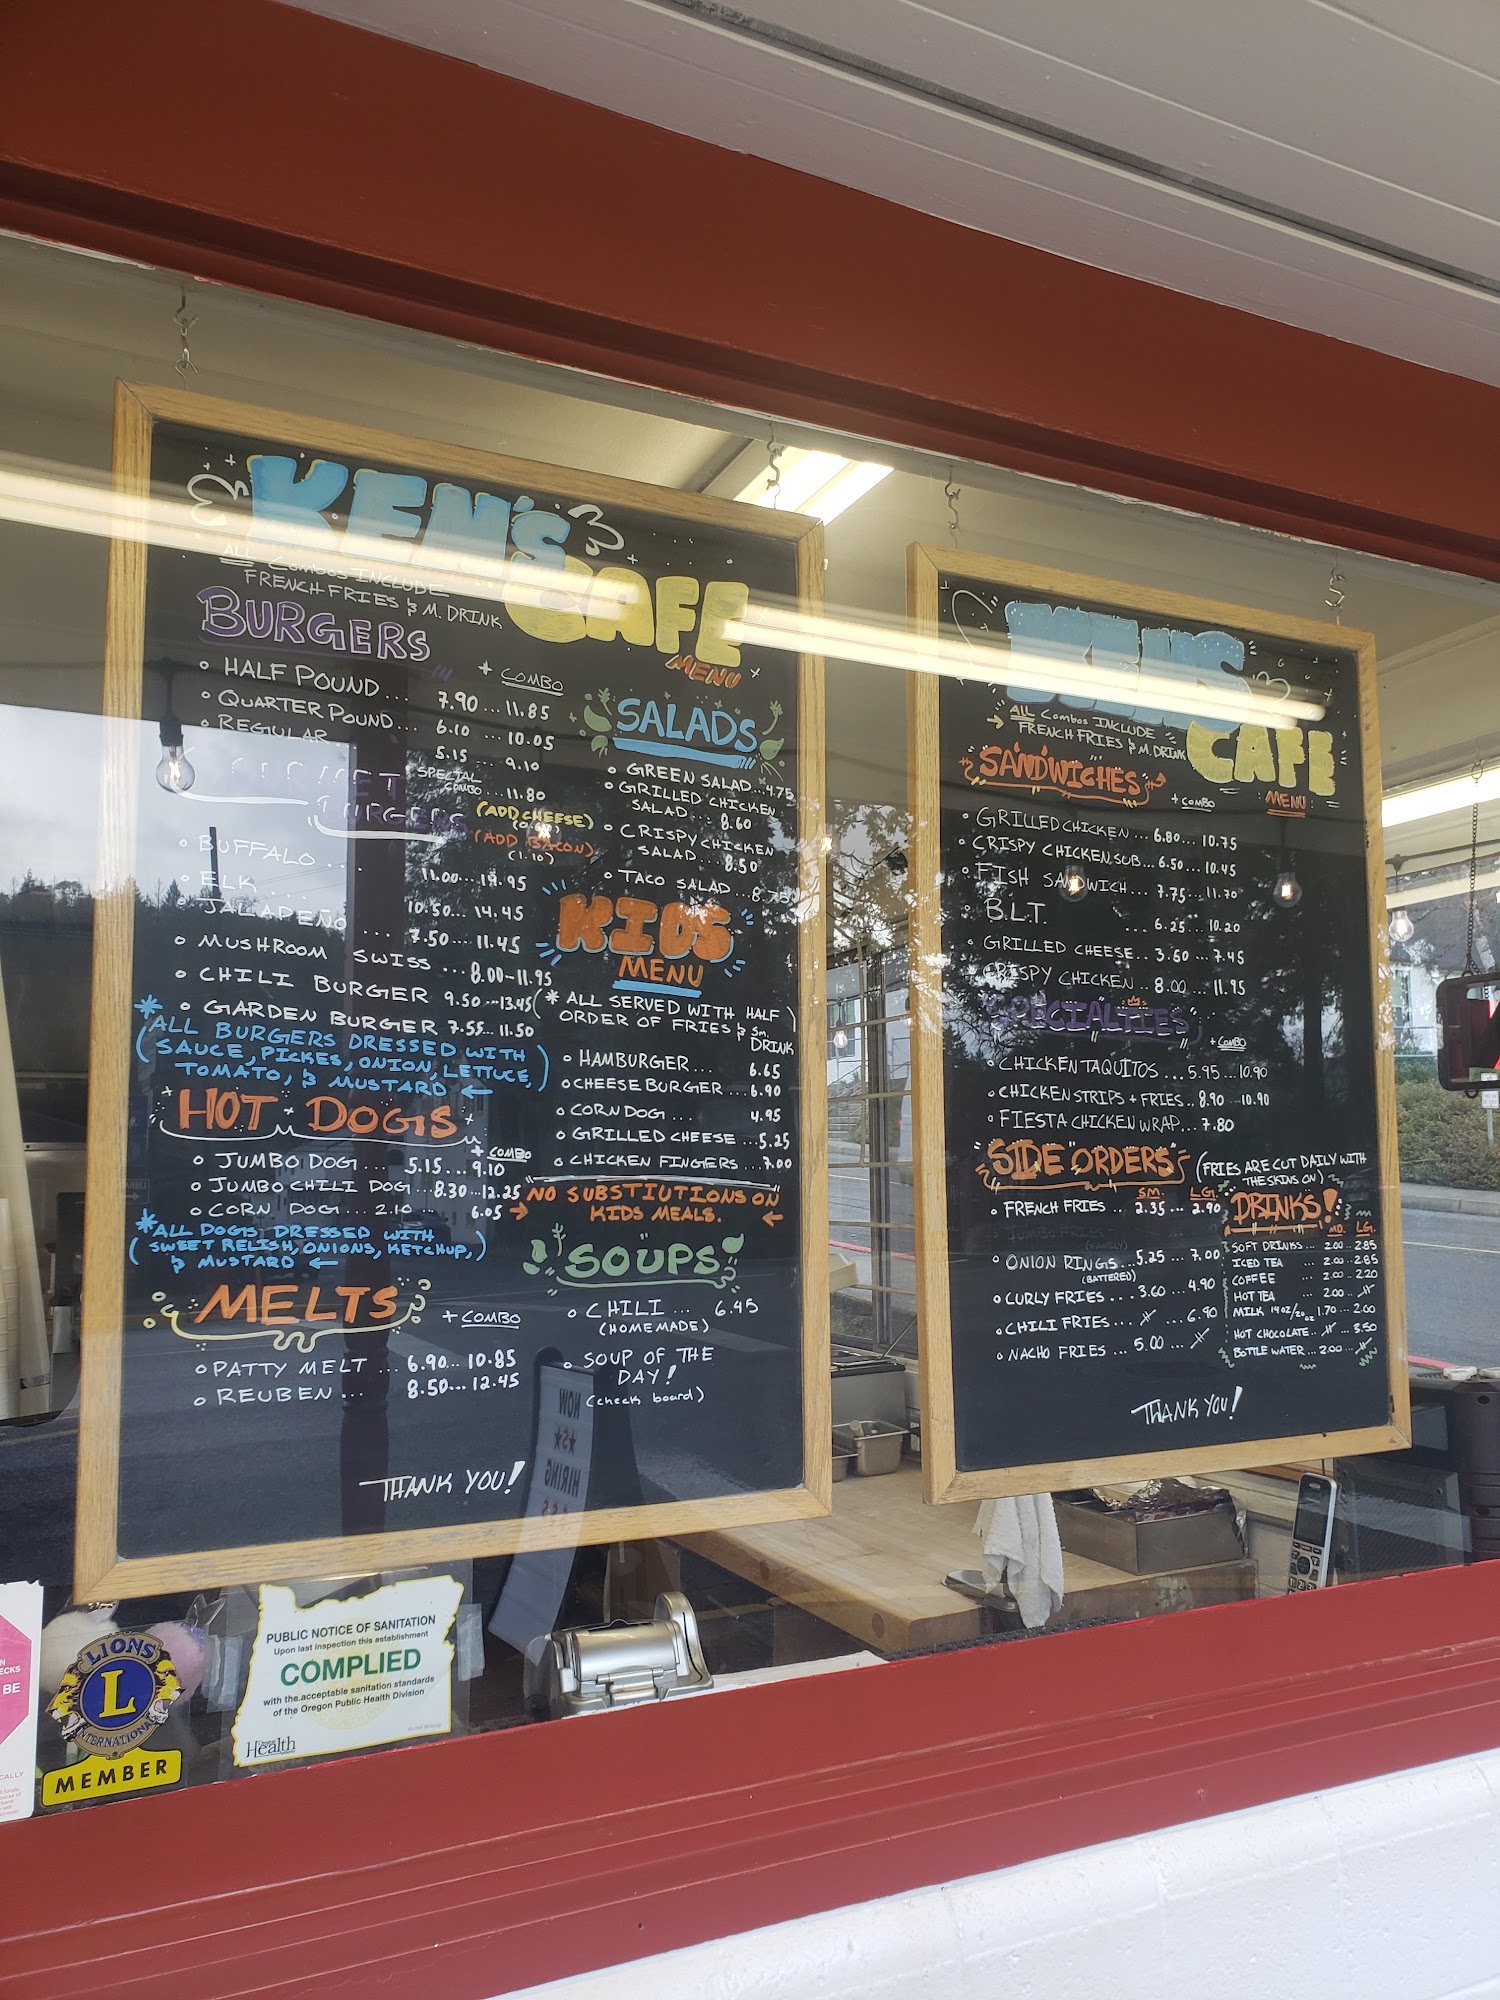 KEN'S
CAFE
MENU
ALL Combos INCLUDE
FRENCH FRIES & M. DRINK
BURGERS
+ COMBO
HALF POUND... 7.90...11.85
QUARTER POUND... 6.10...10.05
REGULAR 5.15...9.10
SPECIAL
COMBO...11.80
(ADD CHEESE)
(ADD BACON)
(1.10)
BURGERS
BUFFALO... 11.00...
ELK... 10.50...14.45
JALAPEÑO... 7.50...11.45
MUSHROOM SWISS...8.00-11.95
CHILI BURGER 9.50...13.45
GARDEN BURGER 7.55...11.50
*ALL BURGERS DRESSED WITH
(SAUCE, PICKES, ONION, LETTUCE,)
TOMATO, & MUSTARD ←
HOT DOGS
+ COMBO
JUMBO DOG... 5.15...9.10
JUMBO CHILI DOG...8.30...12.25
CORN DOG... 2.10... 6.05
*ALL DOGS DRESSED WITH
(SWEET RELISH, ONIONS, KETCHUP,)
& MUSTARD ←
MELTS
+ COMBO
PATTY MELT ... 6.90...10.85
REUBEN... 8.50...12.45
THANK YOU!
SALADS
GREEN SALAD...4.75
GRILLED CHICKEN
SALAD...8.60
CRISPY CHICKEN
SALAD...8.50
TACO SALAD
KIDS
MENU
(* ALL SERVED WITH HALF
ORDER OF FRIES & Sm.
DRINK)
HAMBURGER... 6.65
CHEESEBURGER...6.90
CORN DOG... 4.95
GRILLED CHEESE...5.25
CHICKEN FINGERS...7.00
→ NO SUBSTIUTIONS ON
KIDS MEALS. ←
SOUPS
CHILI... 6.45
(HOMEMADE)
SOUP OF THE
DAY!
(check board)
KEN'S
CAFE
MENU
→ ALL Combos INCLUDE
FRENCH FRIES & M. DRINK
SANDWICHES
+ COMBO
GRILLED CHICKEN...6.80...10.75
CRISPY CHICKEN SUB...6.50...10.45
FISH SANDWICH...7.75...11.70
B.L.T. ...6.25...10.20
GRILLED CHEESE..3.60...7.45
CRISPY CHICKEN..8.00...11.95
SPECIALTIES
+ COMBO
CHICKEN TAQUITOS...5.95...10.90
CHICKEN STRIPS + FRIES..8.90...10.90
FIESTA CHICKEN WRAP...7.80
SIDE ORDERS
(FRIES ARE CUT DAILY WITH
THE SKINS ON)
SM. LG.
FRENCH FRIES .. 2.35...2.90
JUMBO FRIES
(FAMILY)
ONION RINGS...5.25...7.00
(BATTERED)
CURLY FRIES...3.60...4.90
CHILI FRIES... ...6.90
NACHO FRIES ... 5.00...
DRINKS!
MD. LG.
SOFT DRINKS... 2.00...2.85
ICED TEA ... 2.00...2.85
COFFEE ... 2.00...2.20
HOT TEA ... 2.00...
MILK 14oz/20oz 1.70...2.00
HOT CHOCOLATE.. ...3.50
BOTTLE WATER...2.00...
THANK YOU!
NOW
HIRING
LIONS
L
INTERNATIONAL
MEMBER
PUBLIC NOTICE OF SANITATION
Upon last inspection this establishment
COMPLIED
with the acceptable sanitation standards
of the Oregon Public Health Division
Oregon
Health